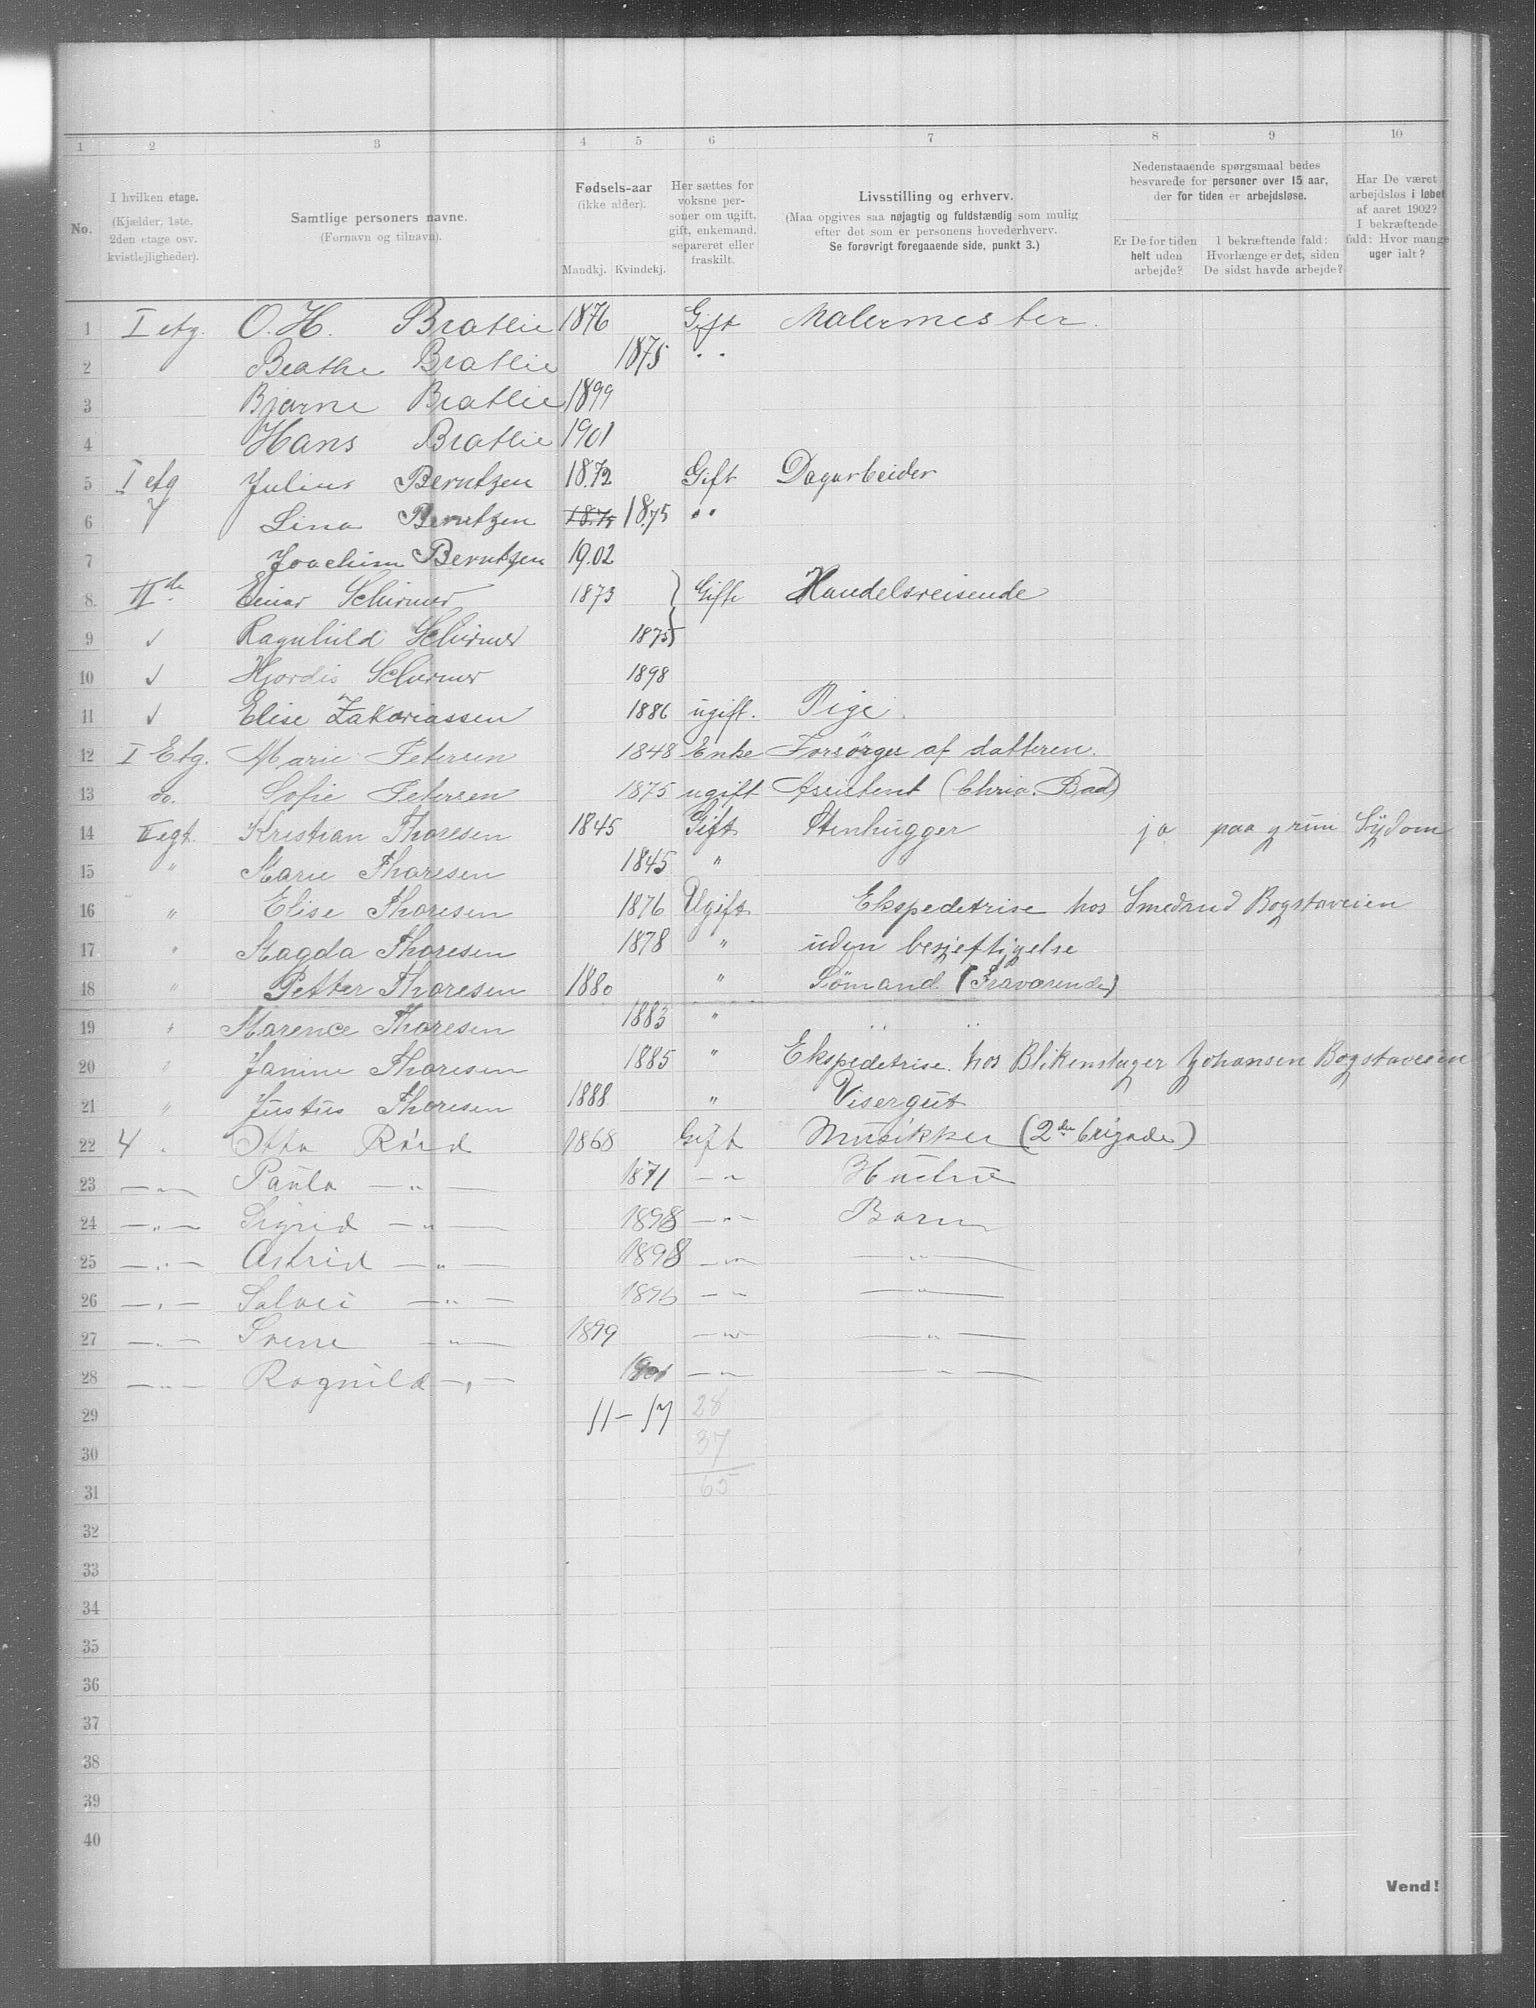 1 2 3 4 5 6 7 8 9 10
No.
I hvilken etage.
(Kjælder, 1ste,
2den etage osv.
kvistlejligheder).
Samtlige personers navne.
(Fornavn og tilnavn).
Fødsels-aar
(ikke alder).
Mandkj. Kvindekj.
Her sættes for
voksne per-
soner om ugift,
gift, enkemand,
separeret eller
fraskilt.
Livsstilling og erhverv.
(Maa opgives saa nøjagtig og fuldstændig som mulig
efter det som er personens hovederhverv.
Se forøvrigt foregaaende side, punkt 3.)
Nedenstaaende spørgsmaal bedes
besvarede for personer over 15 aar,
der for tiden er arbejdsløse.
Er De for tiden
helt uden
arbejde?
I bekræftende fald:
Hvorlænge er det, siden
De sidst havde arbejde?
Har De været
arbejdsløs i løbet
af aaret 1902?
I bekræftende
fald: Hvor mange
uger ialt?
1 I etg. O. H. Bratlie 1876 Gift Malermester.
2 Beathe Bratlie 1875 " "
3 Bjarne Bratlie 1899
4 Hans Bratlie 1901
5 I etg Julius Berntzen 1872 Gift Dagarbeider
6 Lina Berntzen 1875 " "
7 Joachim Berntzen 1902
8 II de Einar Schirmer 1873 } Gifte Handelsreisende
9 √ Ragnhild Schirmer 1875 }
10 √ Hjordis Schirmer 1898
11 √ Elise Zakariassen 1886 ugift. Pige.
12 I Etg. Marie Petersen 1848 Enke Forsørges af datteren.
13 do. Sofie Petersen 1875 ugift Assistent (Chria. Bad)
14 II egt. Kristian Thoresen 1845 Gift Stenhugger ja paa grun Sydom
15 " Marie Thoresen 1845 "
16 " Elise Thoresen 1876 Ugift Ekspedetrise hos Smedsrud Bogstaveien
17 " Magda Thoresen 1878 " uden besjeftigelse
18 " Petter Thoresen 1880 " Sømand (Fraværende)
19 " Marence Thoresen 1883 " " "
20 " Janine Thoresen 1885 " Ekspedetrise hos Blikenslager Johansen Bogstaveien
21 " Justus Thoresen 1888 " Visergut
22 4 . Otto Röed 1868 Gift Musikker (2den brigade)
23 — " — Paula — " — 1871 — " Hustru
24 — " — Sigrid — " — 1898 — " — Barn
25 — " — Astrid — " — 1898 — " — — " —
26 — " — Solvei — " — 1896 — " — — " —
27 — " — Svene — " — 1899 — " — — " —
28 — " — Ragnild — " — 1901 — " — — " —
29 11 — 17 28
30 37
31 65
32
33
34
35
36
37
38
39
40
Vend!